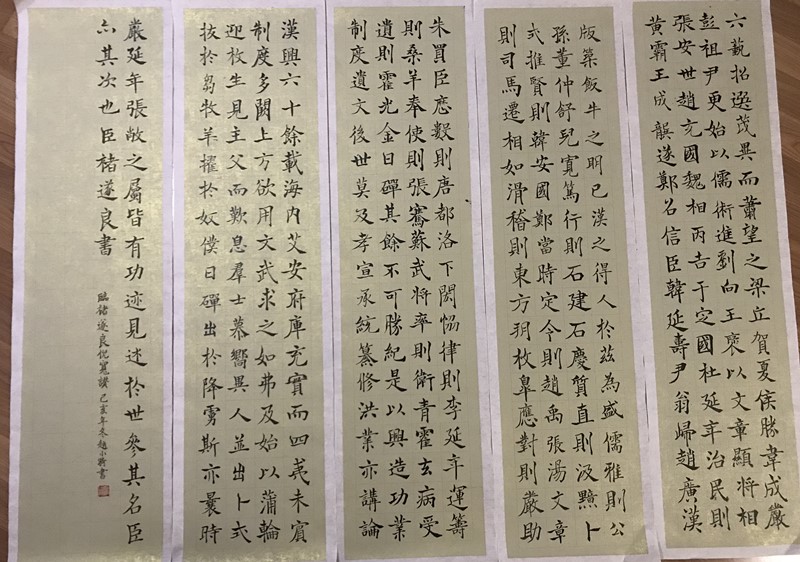 漢興六十餘載海內艾安府庫充實而四夷未賓
制度多闕上方欲用文武求之如弗及始以蒲輪
迎枚生見主父而歎息羣士慕嚮異人並出卜式
拔於芻牧羊擢於奴僕日磾出於降虜斯亦曩時
版築飯牛之明已漢之得人於茲為盛儒雅則公
孫董仲舒兒寬篤行則石建石慶質直則汲黯卜
式推賢則韓安國鄭當時定令則趙禹張湯文章
則司馬遷相如滑稽則東方朔枚皋應對則嚴助
朱買臣應數則唐都洛下閎恊律則李延年運籌
則桑羊奉使則張騫蘇武將率則衛青霍去病受
遺則霍光金日磾其餘不可勝紀是以興造功業
制度遺文後世莫及孝宣承統纂修洪業亦講論
六藝招選茂異而蕭望之梁丘賀夏侯勝韋成嚴
彭祖尹更始以儒術進劉向王褒以文章顯將相
張安世趙充國魏相丙吉于定國杜延年治民則
黃霸王成龔遂鄭召信臣韓延壽尹翁歸趙廣漢
嚴延年張敞之屬皆有功迹見述於世參其名臣
亦其次也臣褚遂良書
臨褚遂良倪寬讚己亥年冬趙小 書